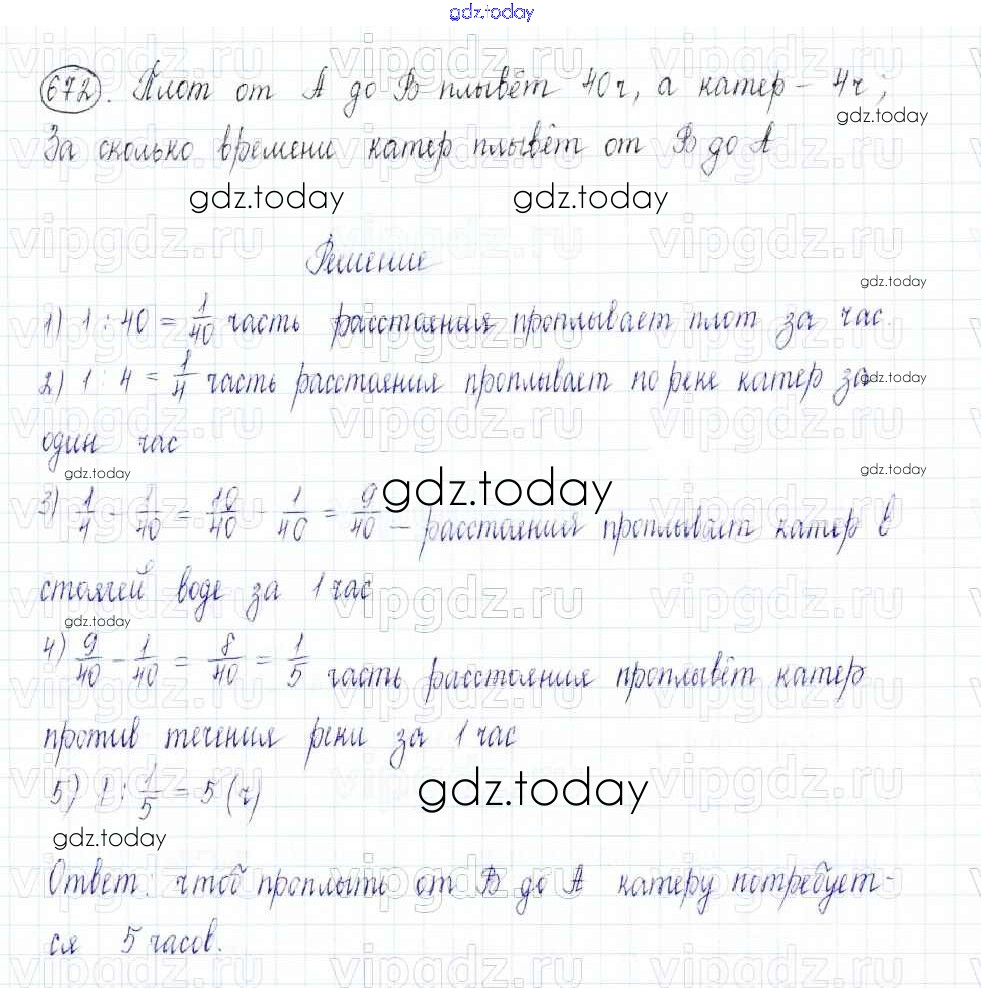 gdz.today
672. Плот от А до В плывёт 40ч, а катер - 4ч;
gdz.today
За сколько времени катер плывёт от В до А
gdz.today gdz.today
Решение
gdz.today
1) 1 : 40 = 1/40 часть расстояния проплывает плот за час.
2) 1 : 4 = 1/4 часть расстояния проплывает по реке катер за
gdz.today
один час
gdz.today gdz.today gdz.today
3) 1/4 - 1/40 = 10/40 - 1/40 = 9/40 - расстояния проплывает катер в
стоячей воде за 1 час
gdz.today
4) 9/40 - 1/40 = 8/40 = 1/5 часть расстояния проплывёт катер
против течения реки за 1 час
5) 1 : 1/5 = 5 (ч)
gdz.today
gdz.today
Ответ: чтоб проплыть от В до А катеру потребует-
ся 5 часов.
vipgdz.ru